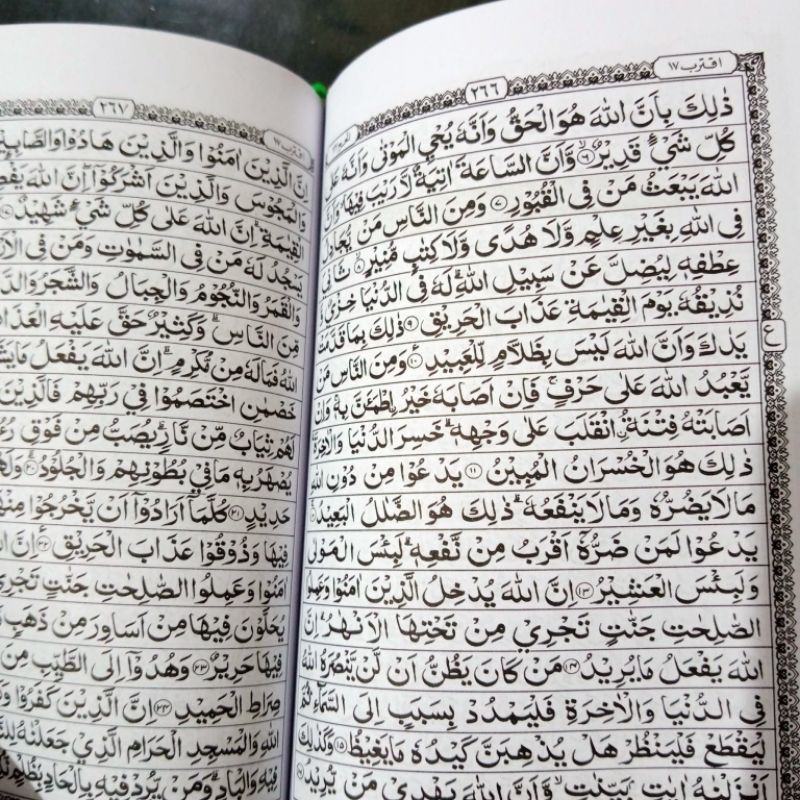 اقترب ١٧
٢٦٦
ذٰلِكَ بِاَنَّ اللّٰهَ هُوَ الْحَقُّ وَاَنَّهٗ يُحْيِ الْمَوْتٰى وَاَنَّهٗ عَلٰى
كُلِّ شَيْءٍ قَدِيْرٌ ٦ وَّاَنَّ السَّاعَةَ اٰتِيَةٌ لَّا رَيْبَ فِيْهَا وَاَنَّ
اللّٰهَ يَبْعَثُ مَنْ فِى الْقُبُوْرِ ٧ وَمِنَ النَّاسِ مَنْ يُّجَادِلُ
فِى اللّٰهِ بِغَيْرِ عِلْمٍ وَّلَا هُدًى وَّلَا كِتٰبٍ مُّنِيْرٍ ٨ ثَانِيَ
عِطْفِهٖ لِيُضِلَّ عَنْ سَبِيْلِ اللّٰهِ لَهٗ فِى الدُّنْيَا خِزْيٌ
نُذِيْقُهٗ يَوْمَ الْقِيٰمَةِ عَذَابَ الْحَرِيْقِ ٩ ذٰلِكَ بِمَا قَدَّمَتْ
يَدٰكَ وَاَنَّ اللّٰهَ لَيْسَ بِظَلَّامٍ لِّلْعَبِيْدِ ١٠ وَمِنَ النَّاسِ مَنْ
يَّعْبُدُ اللّٰهَ عَلٰى حَرْفٍ فَاِنْ اَصَابَهٗ خَيْرُ ِۨاطْمَئَنَّ بِهٖ وَاِنْ
اَصَابَتْهُ فِتْنَةُ ِۨانْقَلَبَ عَلٰى وَجْهِهٖ خَسِرَ الدُّنْيَا وَالْاٰخِرَةَ
ذٰلِكَ هُوَ الْخُسْرَانُ الْمُبِيْنُ ١١ يَدْعُوْا مِنْ دُوْنِ اللّٰهِ
مَا لَا يَضُرُّهٗ وَمَا لَا يَنْفَعُهٗ ذٰلِكَ هُوَ الضَّلٰلُ الْبَعِيْدُ
يَدْعُوْا لَمَنْ ضَرُّهٗ اَقْرَبُ مِنْ نَّفْعِهٖ لَبِئْسَ الْمَوْلٰى
وَلَبِئْسَ الْعَشِيْرُ ١٣ اِنَّ اللّٰهَ يُدْخِلُ الَّذِيْنَ اٰمَنُوْا وَعَمِلُوا
الصّٰلِحٰتِ جَنّٰتٍ تَجْرِيْ مِنْ تَحْتِهَا الْاَنْهٰرُ اِنَّ
اللّٰهَ يَفْعَلُ مَا يُرِيْدُ ١٤ مَنْ كَانَ يَظُنُّ اَنْ لَّنْ يَّنْصُرَهُ اللّٰهُ
فِى الدُّنْيَا وَالْاٰخِرَةِ فَلْيَمْدُدْ بِسَبَبٍ اِلَى السَّمَآءِ ثُمَّ
لْيَقْطَعْ فَلْيَنْظُرْ هَلْ يُذْهِبَنَّ كَيْدُهٗ مَا يَغِيْظُ ١٥ وَكَذٰلِكَ
اَنْزَلْنٰهُ اٰيٰتٍۢ بَيِّنٰتٍ وَّاَنَّ اللّٰهَ يَهْدِيْ مَنْ يُّرِيْدُ
ع
اقترب ١٧
٢٦٧
اِنَّ الَّذِيْنَ اٰمَنُوْا وَالَّذِيْنَ هَادُوْا وَالصَّابِـِٕ
وَالْمَجُوْسَ وَالَّذِيْنَ اَشْرَكُوْا اِنَّ اللّٰهَ يَفْصِ
الْقِيٰمَةِ اِنَّ اللّٰهَ عَلٰى كُلِّ شَيْءٍ شَهِيْدٌ
يَسْجُدُ لَهٗ مَنْ فِى السَّمٰوٰتِ وَمَنْ فِى الْاَ
وَالْقَمَرُ وَالنُّجُوْمُ وَالْجِبَالُ وَالشَّجَرُ وَالدَّ
مِّنَ النَّاسِ وَكَثِيْرٌ حَقَّ عَلَيْهِ الْعَذَا
اللّٰهُ فَمَا لَهٗ مِنْ مُّكْرِمٍ اِنَّ اللّٰهَ يَفْعَلُ مَا يَشَا
خَصْمٰنِ اخْتَصَمُوْا فِيْ رَبِّهِمْ فَالَّذِيْنَ
لَهُمْ ثِيَابٌ مِّنْ نَّارٍ يُصَبُّ مِنْ فَوْقِ رُءُ
يُصْهَرُ بِهٖ مَا فِيْ بُطُوْنِهِمْ وَالْجُلُوْدُ ٢٠ وَلَهُ
حَدِيْدٍ ٢١ كُلَّمَآ اَرَادُوْٓا اَنْ يَّخْرُجُوْا مِنْهَا
فِيْهَا وَذُوْقُوْا عَذَابَ الْحَرِيْقِ ٢٢ اِنَّ ال
اٰمَنُوْا وَعَمِلُوا الصّٰلِحٰتِ جَنّٰتٍ تَجْرِيْ
يُحَلَّوْنَ فِيْهَا مِنْ اَسَاوِرَ مِنْ ذَهَبٍ
فِيْهَا حَرِيْرٌ ٢٣ وَهُدُوْٓا اِلَى الطَّيِّبِ مِنَ
صِرَاطِ الْحَمِيْدِ ٢٤ اِنَّ الَّذِيْنَ كَفَرُوْا وَ
اللّٰهِ وَالْمَسْجِدِ الْحَرَامِ الَّذِيْ جَعَلْنٰهُ لِلنَّا
فِيْهِ وَالْبَادِ وَمَنْ يُّرِدْ فِيْهِ بِاِلْحَادٍۢ بِظُلْمٍ